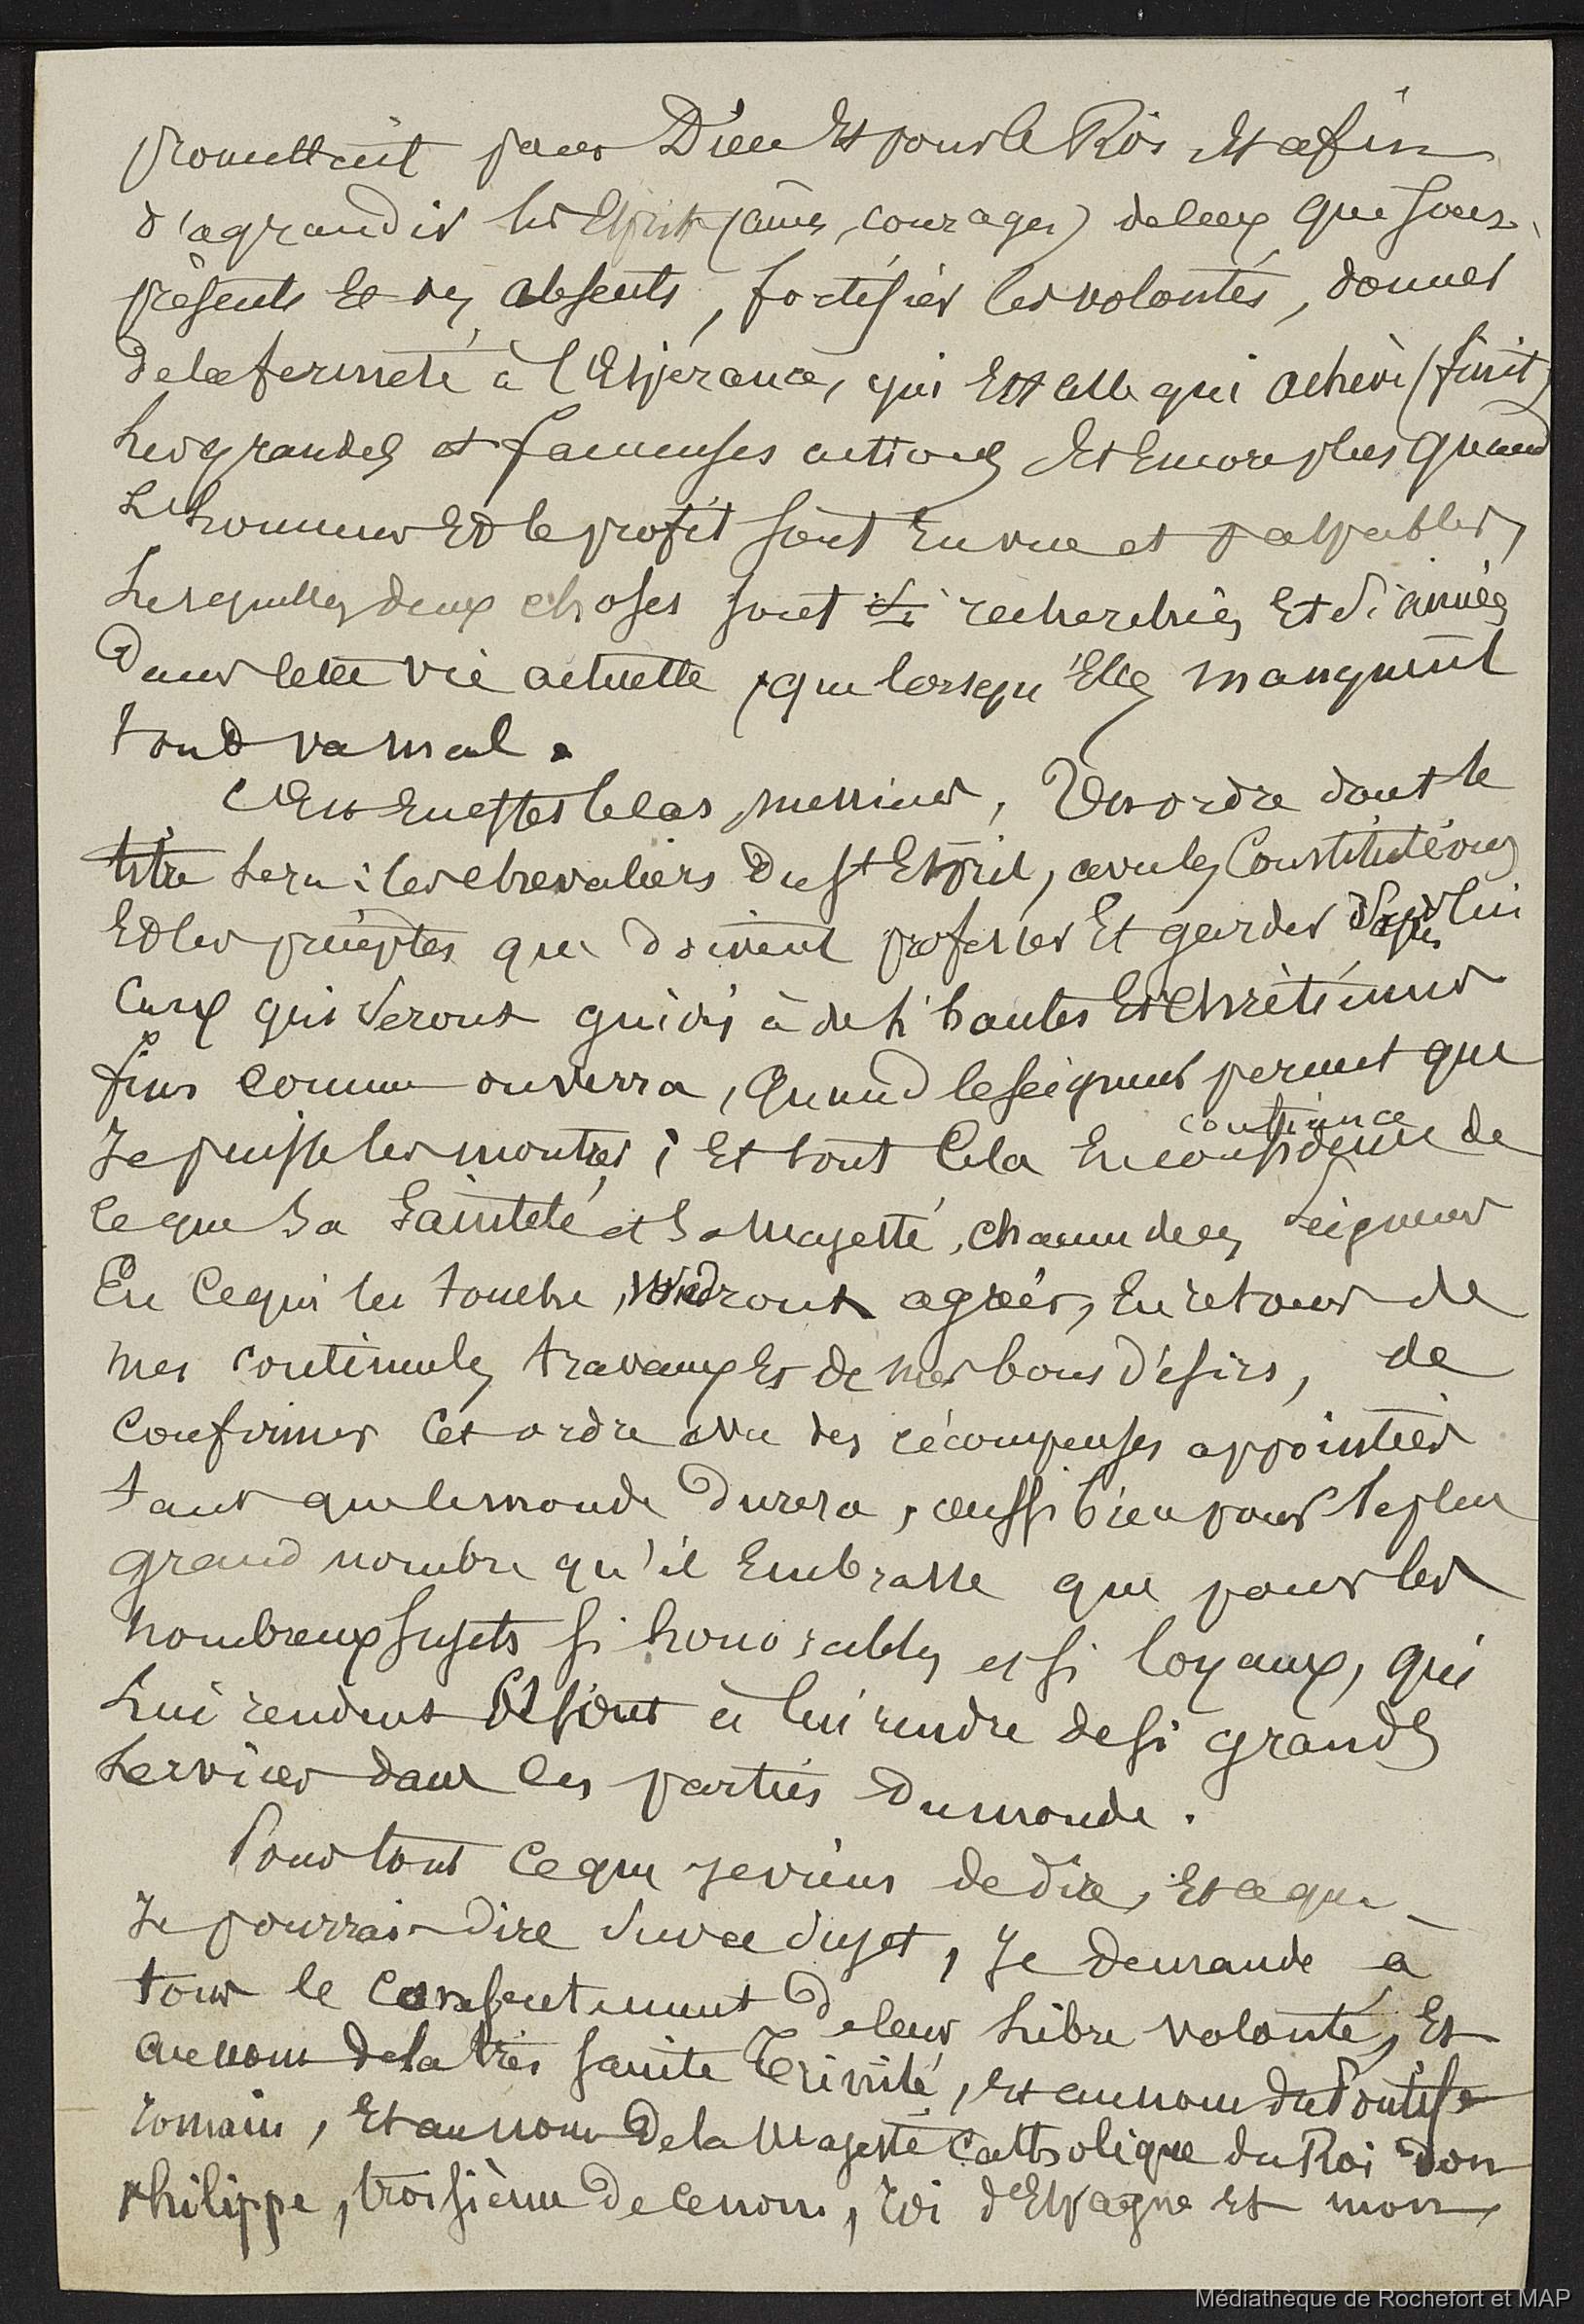 promettent pour Dieu et pour le Roi et afin
d'agrandir les Esprits (âmes, courages) de ceux qui sont
présents et des absents, fortifier les volontés, donner
de la fermeté à l'Espérance, qui est celle qui achève (finit)
les grandes et fameuses actions et encore plus quand
l'honneur et le profit sont en vue et palpables,
lesquelles deux choses sont si recherchées et si aimées
dans cette vie actuelle, que lorsqu'elles manquent
tout va mal.
messieurs, un ordre dont le
titre sera : les chevaliers du St Esprit, avec les Constitutions
et les préceptes que doivent professer et garder
ceux qui seront guidés à de si hautes et chrétiennes
fins comme on verra, quand le seigneur permet que
je puisse les montrer ; et tout cela en confidence confiance de
ce que sa Sainteté et sa Majesté, chacun des Seigneurs
en ce qui les touche, agréer, en retour de
mes continuels travaux et de mes bons désirs, de
confirmer cet ordre avec des récompenses appointées
tant que le monde durera, aussi bien pour le plus
grand nombre qu'il embrasse que pour les
nombreux sujets si honorables et si loyaux, qui
lui rendent et sont à lui rendre de si grands
services dans les parties du monde.
Pour tout ce que je viens de dire, et ce que
je pourrai dire sur ce sujet, je demande à
tous le consentement de leur libre volonté, et
au nom de la très sainte Trinité, et au nom du Pontife
romain, et au nom de la Majesté Catholique du Roi don
Philippe, troisième de ce nom, roi d'Espagne et mon
Médiathèque de Rochefort et MAP